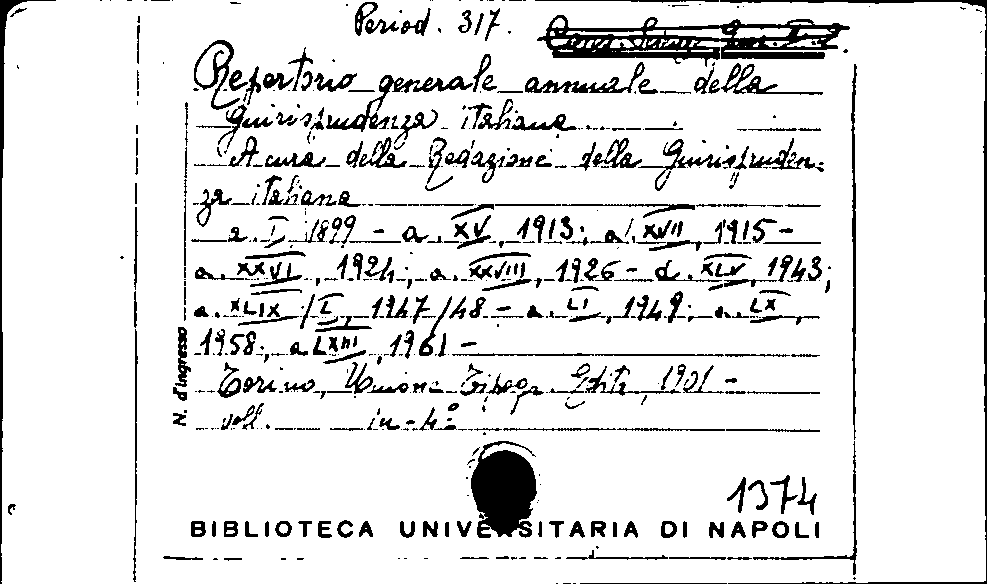 Period. 317.
Repertorio generale annuale della
Giurisprudenza italiana
A cura della Redazione della Giurispruden-
za italiana
a. I, 1899 - a. XV, 1913; a. XVII, 1915 -
a. XXVI, 1924; a. XXVIII, 1926 - a. XLV, 1943;
a. XLIX/L, 1947/48 - a. LI, 1949; a. LX,
1958; a. LXIII, 1961 -
Torino, Unione Tipogr. Edit., 1901 -
voll. in-4º
N. d'ingresso
1374
BIBLIOTECA UNIVERSITARIA DI NAPOLI